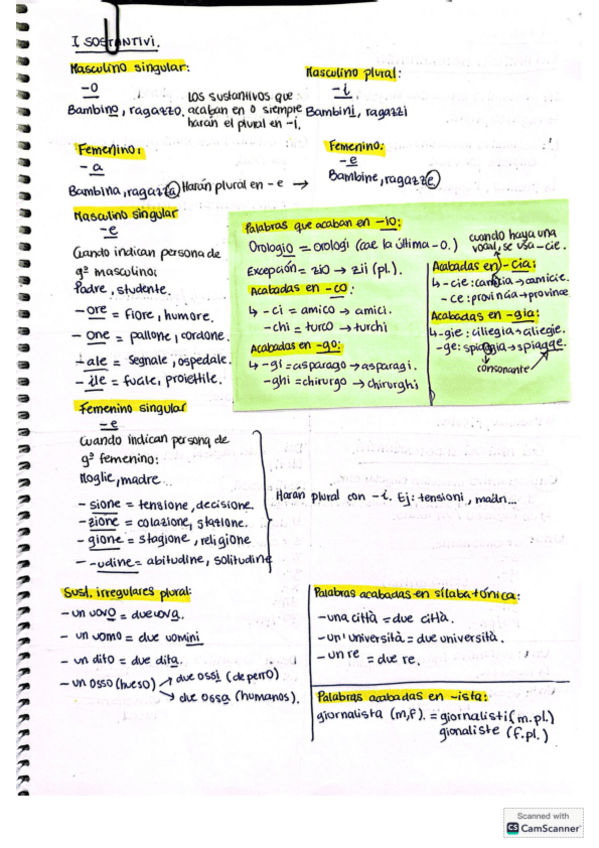 I SOSTANTIVI.
Masculino singular:
-o
Bambino, ragazzo.
Los sustantivos que
acaban en o siempre
harán el plural en -i.
Masculino plural:
-i
Bambini, ragazzi
Femenino:
-a
Bambina, ragazza
Harán plural en -e →
Femenino:
-e
Bambine, ragazze
Masculino singular
-e
Cuando indican persona de
gº masculino:
Padre, studente.
-ore = Fiore, humore.
-one = pallone, cordone.
-ale = Segnale, ospedale.
-ile = fucile, proiettile.
Palabras que acaban en -io:
Orologio = orologi (cae la última -o.)
Excepción = zio → zii (pl.).
Acabadas en -co:
↳ -ci = amico → amici.
-chi = turco → turchi
Acabadas en -go:
↳ -gi = asparago → asparagi.
-ghi = chirurgo → chirurghi
cuando haya una
vocal, se usa -cie.
Acabadas en -cia:
↳ -cie: camicia → amicie.
-ce: provincia → province
Acabadas en -gia:
↳ -gie: ciliegia → ciliegie.
-ge: spiaggia → spiagge.
consonante
Femenino singular
-e
Cuando indican persona de
gº femenino:
Moglie, madre...
-sione = tensione, decisione.
-zione = colazione, stazione.
-gione = stagione, religione
-udine = abitudine, solitudine
Harán plural con -i. Ej: tensioni, madri...
Sust. irregulares plural:
-un uovo = due uova.
-un uomo = due uomini
-un dito = due dita.
-un osso (hueso) → due ossi (de perro)
→ due ossa (humanos).
Palabras acabadas en sílaba tónica:
-una città = due città.
-un' università = due università.
-un re = due re.
Palabras acabadas en -ista:
giornalista (m,f). = giornalisti (m.pl.)
gionaliste (f.pl.)
Scanned with
CS CamScanner